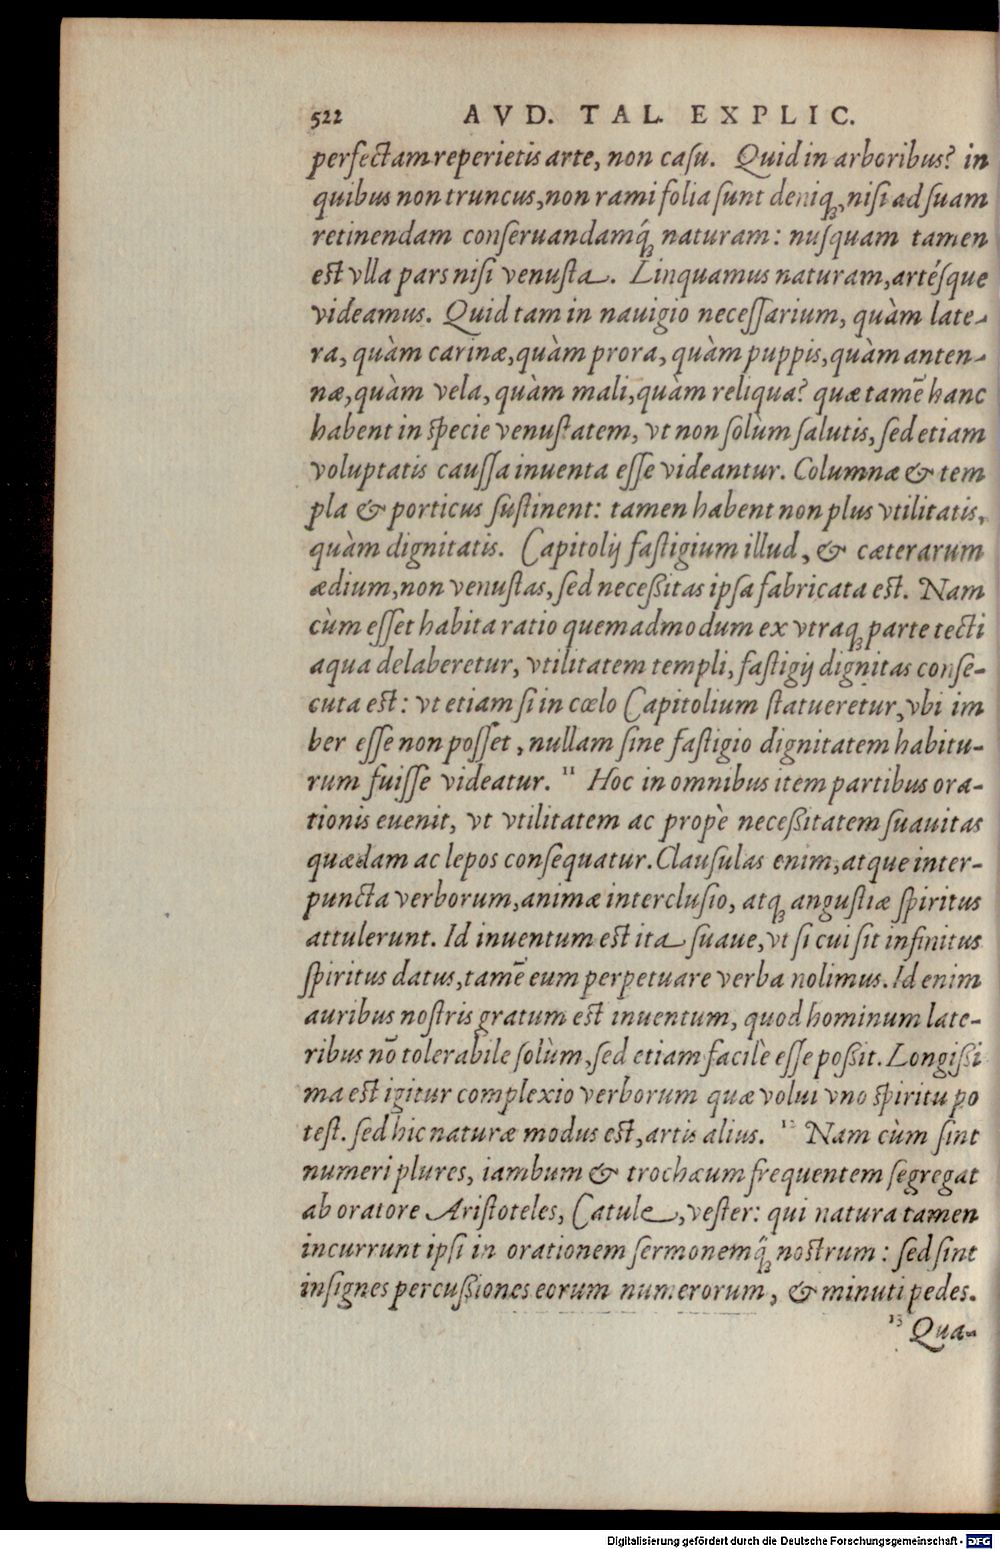 522 AVD. TAL. EXPLIC.
perfectam reperietis arte, non casu. Quid in arboribus? in
quibus non truncus, non rami folia sunt deniq;, nisi ad suam
retinendam conseruandamq́; naturam: nusquam tamen
est vlla pars nisi venusta. Linquamus naturam, artésque
videamus. Quid tam in nauigio necessarium, quàm late-
ra, quàm carinæ, quàm prora, quàm puppis, quàm anten-
næ, quàm vela, quàm mali, quàm reliqua? quæ tamē hanc
habent in specie venustatem, vt non solùm salutis, sed etiam
voluptatis caussa inuenta esse videantur. Columnæ & tem
pla & porticus sustinent: tamen habent non plus vtilitatis,
quàm dignitatis. Capitolij fastigium illud, & cæterarum
ædium, non venustas, sed necessitas ipsa fabricata est. Nam
cùm esset habita ratio quemadmodum ex vtraq; parte tecti
aqua delaberetur, vtilitatem templi, fastigij dignitas conse-
cuta est: vt etiam si in cœlo Capitolium statueretur, vbi im
ber esse non posset, nullam sine fastigio dignitatem habitu-
rum fuisse videatur. 11 Hoc in omnibus item partibus ora-
tionis euenit, vt vtilitatem ac propè necessitatem suauitas
quædam ac lepos consequatur. Clausulas enim, atque inter-
puncta verborum, animæ interclusio, atq; angustiæ spiritus
attulerunt. Id inuentum est ita suaue, vt si cui sit infinitus
spiritus datus, tamē eum perpetuare verba nolimus. Id enim
auribus nostris gratum est inuentum, quod hominum late-
ribus nō tolerabile solùm, sed etiam facilè esse possit. Longissi
ma est igitur complexio verborum quæ volui vno spiritu po
test. sed hic naturæ modus est, artis alius. 12 Nam cùm sint
numeri plures, iambum & trochæum frequentem segregat
ab oratore Aristoteles, Catule, vester: qui natura tamen
incurrunt ipsi in orationem sermonemq́; nostrum: sed sint
insignes percussiones eorum numerorum, & minuti pedes.
13 Qua-
Digitalisierung gefördert durch die Deutsche Forschungsgemeinschaft - DFG